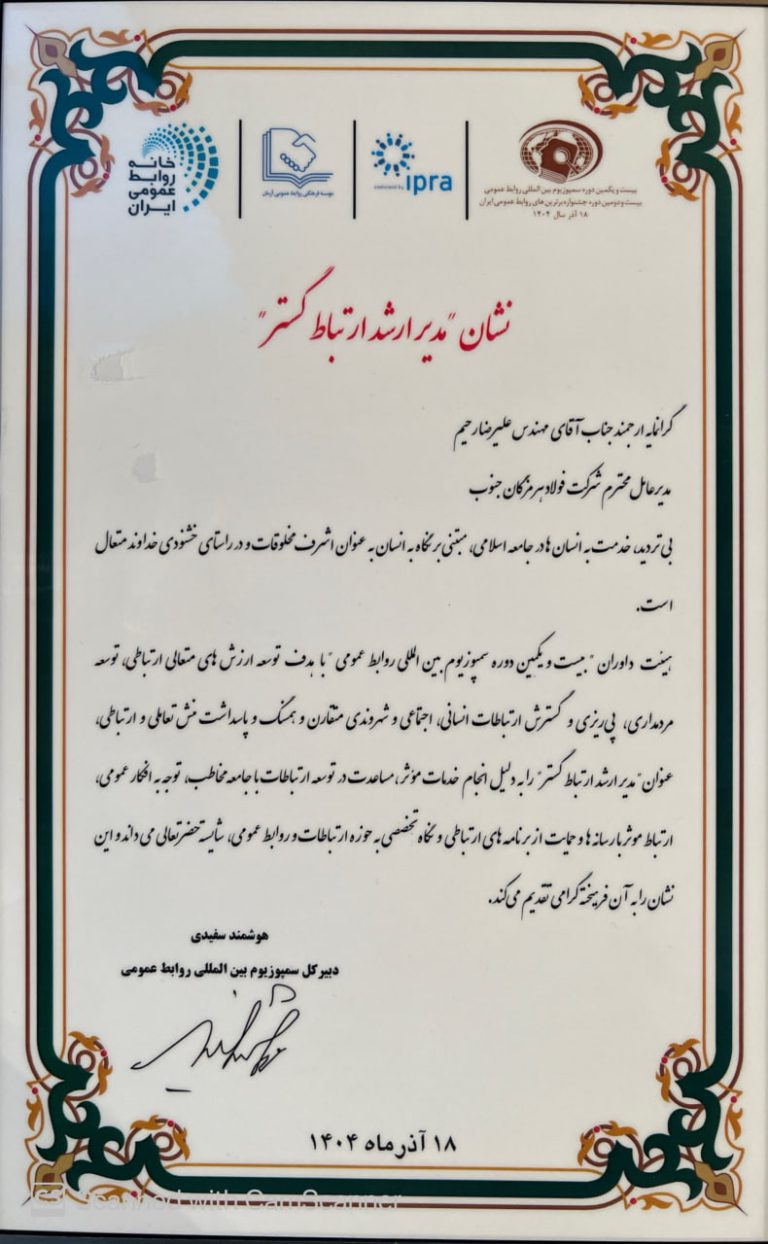 خانه
روابط
عمومی
ایران
موسسه فرهنگی روابط عمومی آرمان
endorsed by ipra
بیست و یکمین دوره سمپوزیوم بین المللی روابط عمومی
بیست و دومین دوره جشنواره برترین های روابط عمومی ایران
۱۸ آذر سال ۱۴۰۴
نشان "مدیر ارشد ارتباط گستر"
گرانمایه ارجمند جناب آقای مهندس علیرضا رحیم
مدیرعامل محترم شرکت فولاد هرمزگان جنوب
بی تردید، خدمت به انسان ها در جامعه اسلامی، مبتنی بر نگاه به انسان به عنوان اشرف مخلوقات و در راستای خشنودی خداوند متعال
است.
هیئت داوران "بیست و یکمین دوره سمپوزیوم بین المللی روابط عمومی" با هدف توسعه ارزش های متعالی ارتباطی، توسعه
مردمداری، پی‌ریزی و گسترش ارتباطات انسانی، اجتماعی و شهروندی متقارن و همسنگ و پاسداشت منش تعاملی و ارتباطی،
عنوان "مدیر ارشد ارتباط گستر" را به دلیل انجام خدمات مؤثر، مساعدت در توسعه ارتباطات با جامعه مخاطب، توجه به افکار عمومی،
ارتباط موثر با رسانه ها و حمایت از برنامه های ارتباطی و نگاه تخصصی به حوزه ارتباطات و روابط عمومی، شایسته حضرتعالی می داند و این
نشان را به آن فرهیخته گرامی تقدیم می‌کند.
هوشمند سفیدی
دبیر کل سمپوزیوم بین المللی روابط عمومی
۱۸ آذر ماه ۱۴۰۴
Scanned with CamScanner